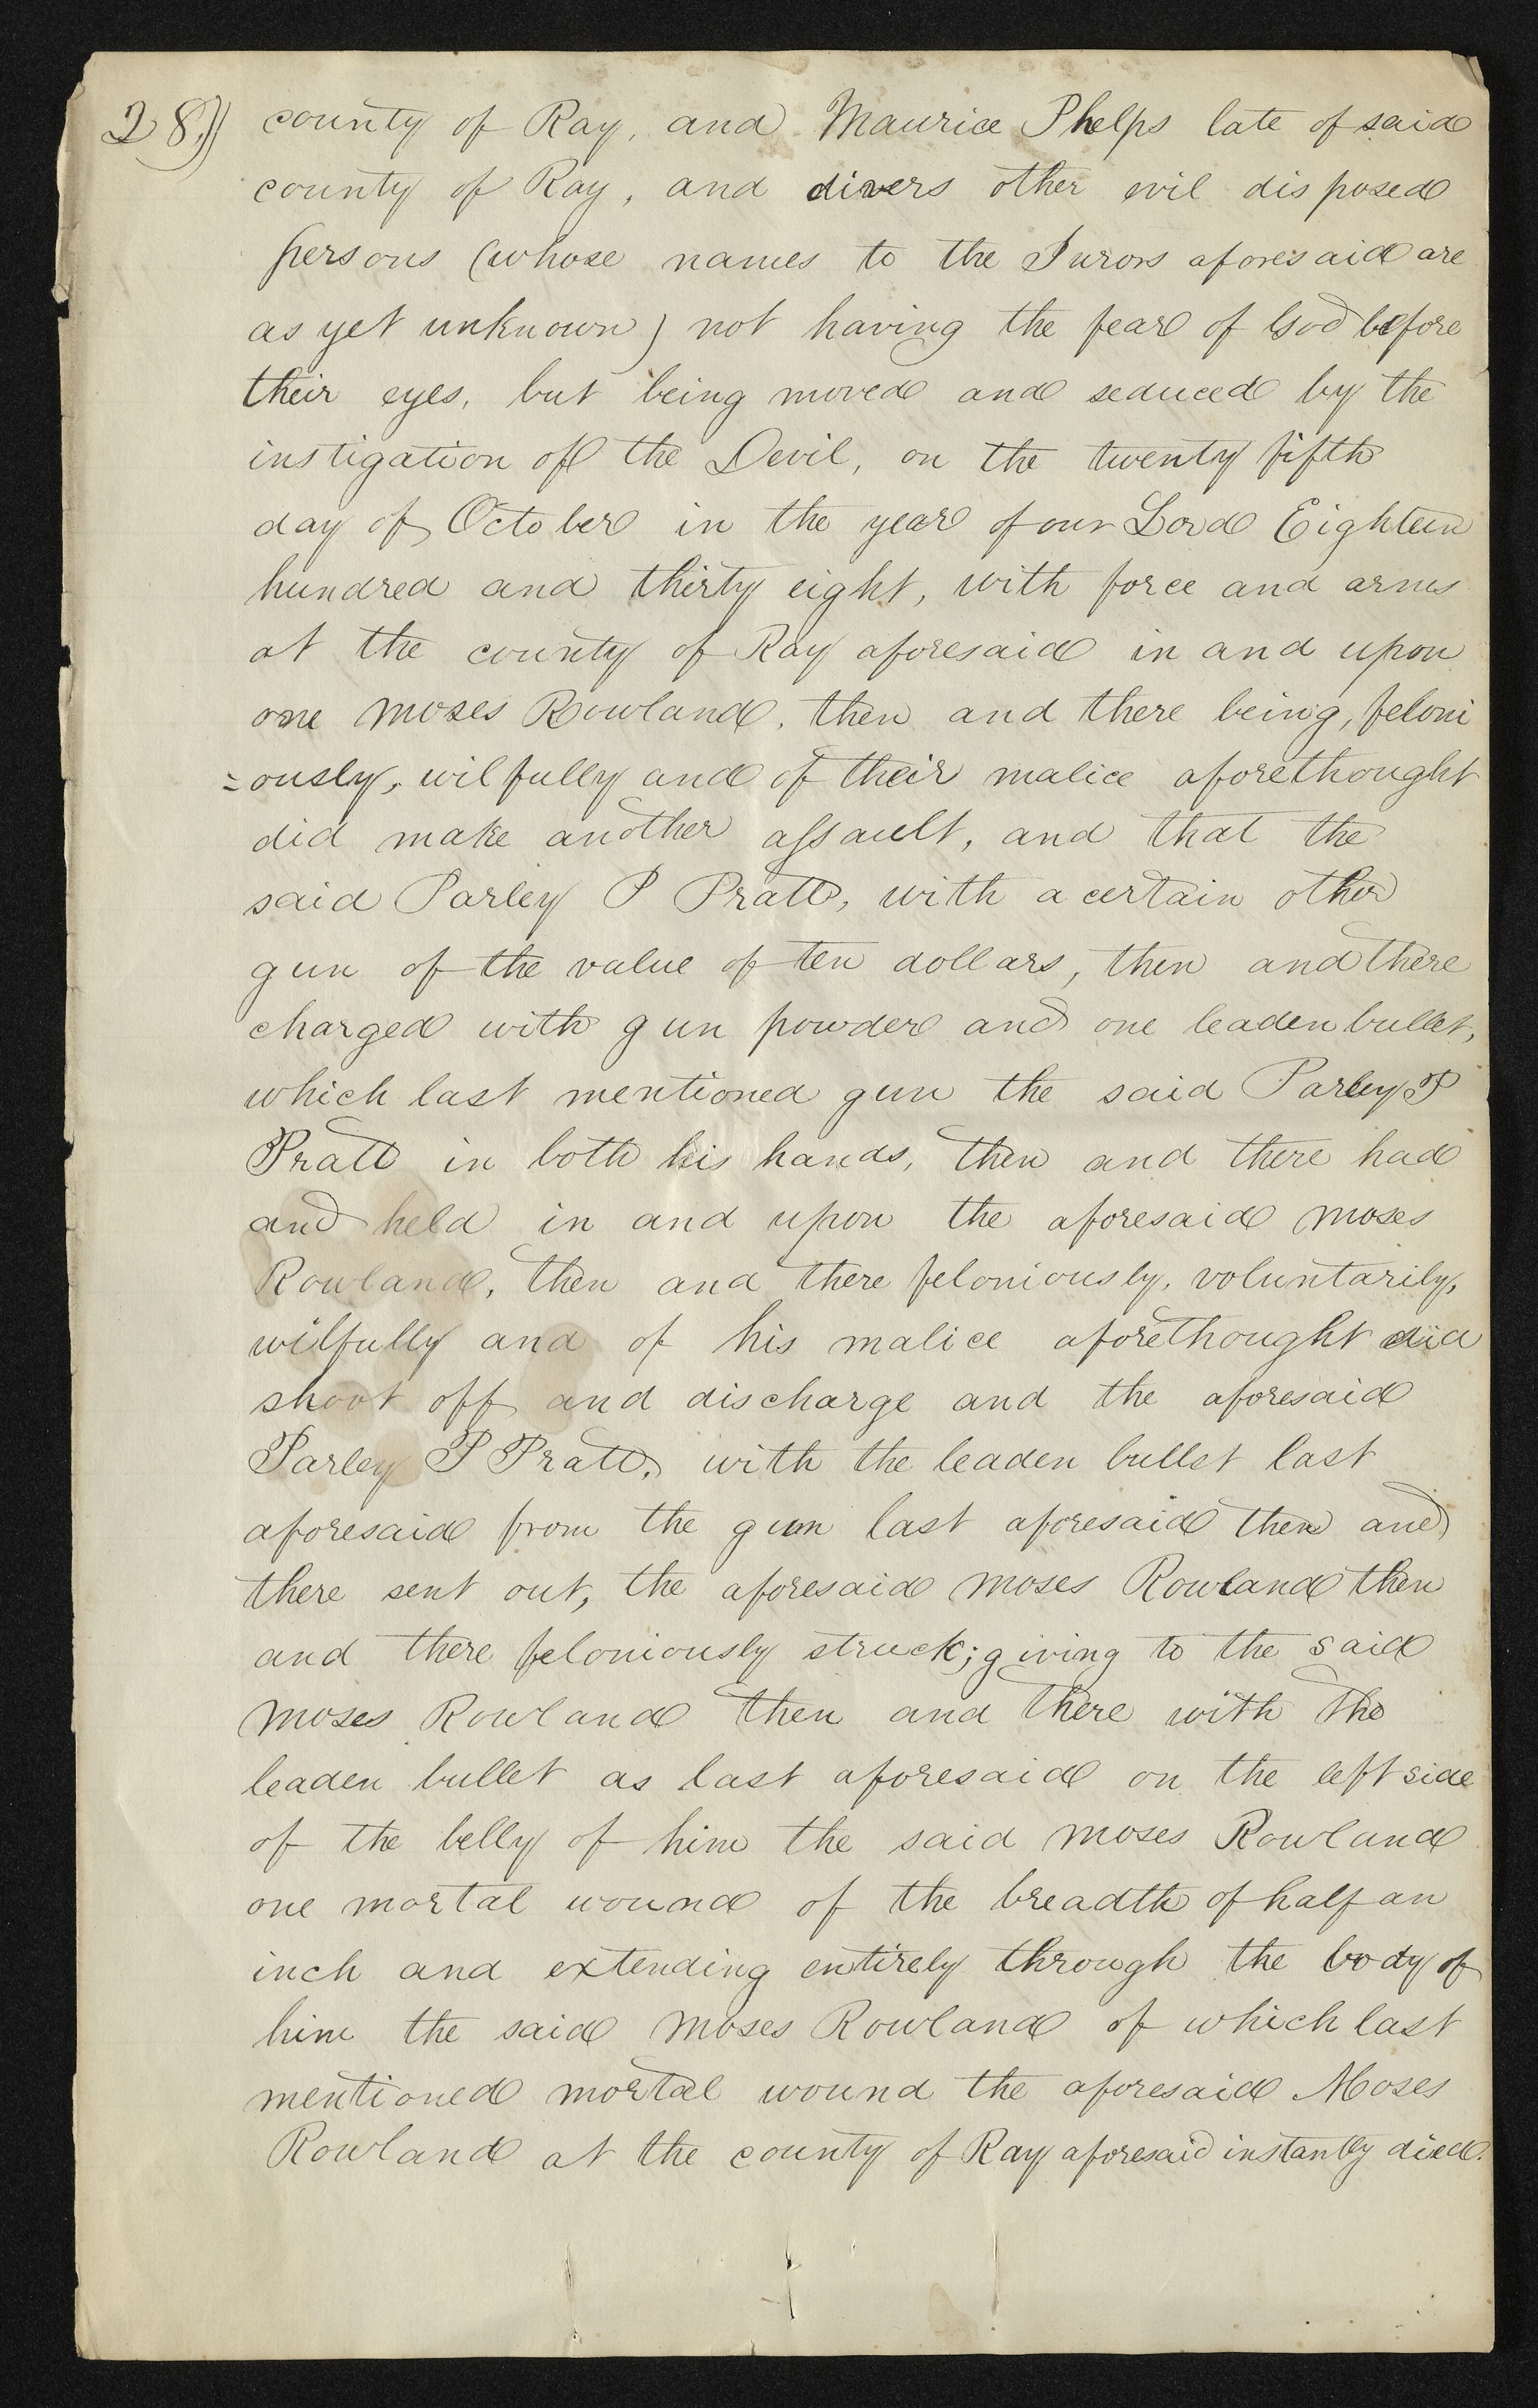 28.)) county of Ray, and Maurice Phelps late of said
county of Ray, and divers other evil disposed
persons (whose names to the Jurors aforesaid are
as yet unknown) not having the fear of God before
their eyes, but being moved and seduced by the
instigation of the Devil, on the twenty fifth
day of October in the year of our Lord Eighteen
hundred and thirty eight, with force and arms
at the county of Ray aforesaid in and upon
one Moses Rowland, then and there being, feloni
=ously, wilfully and of their malice aforethought
did make another assault, and that the
said Parley P Pratt, with a certain other
gun of the value of ten dollars, then and there
charged with gun powder and one leaden bullet,
which last mentioned gun the said Parley P
Pratt in both his hands, then and there had
and held in and upon the aforesaid Moses
Rowland, then and there feloniously, voluntarily,
wilfully and of his malice aforethought did
shoot off and discharge and the aforesaid
Parley P Pratt, with the leaden bullet last
aforesaid from the gun last aforesaid then and
there sent out, the aforesaid Moses Rowland then
and there feloniously struck; giving to the said
Moses Rowland then and there with the
leaden bullet as last aforesaid on the left side
of the belly of him the said Moses Rowland
one mortal wound of the breadth of half an
inch and extending entirely through the body of
him the said Moses Rowland of which last
mentioned mortal wound the aforesaid Moses
Rowland at the county of Ray aforesaid instantly died.